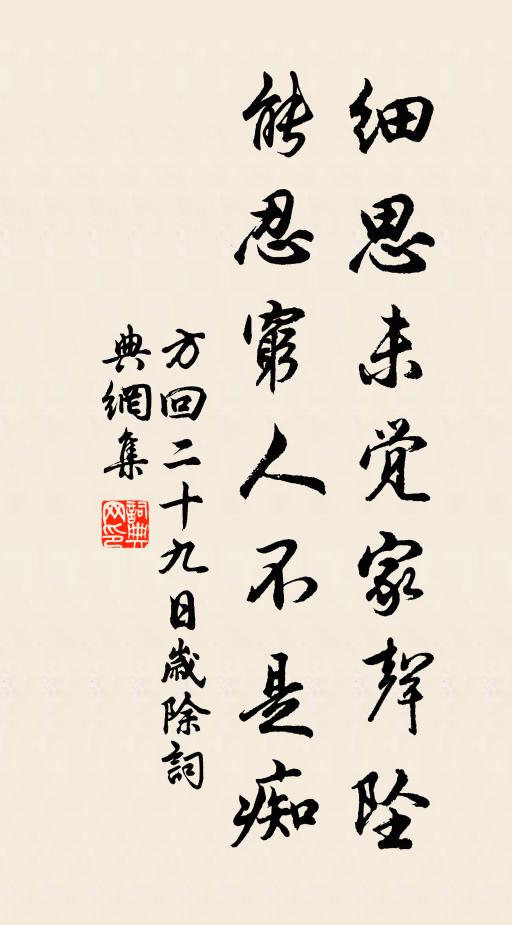 细思未觉家声坠
能忍穷人不是痴
方回二十九日歲除詞
典網集
詞典网印